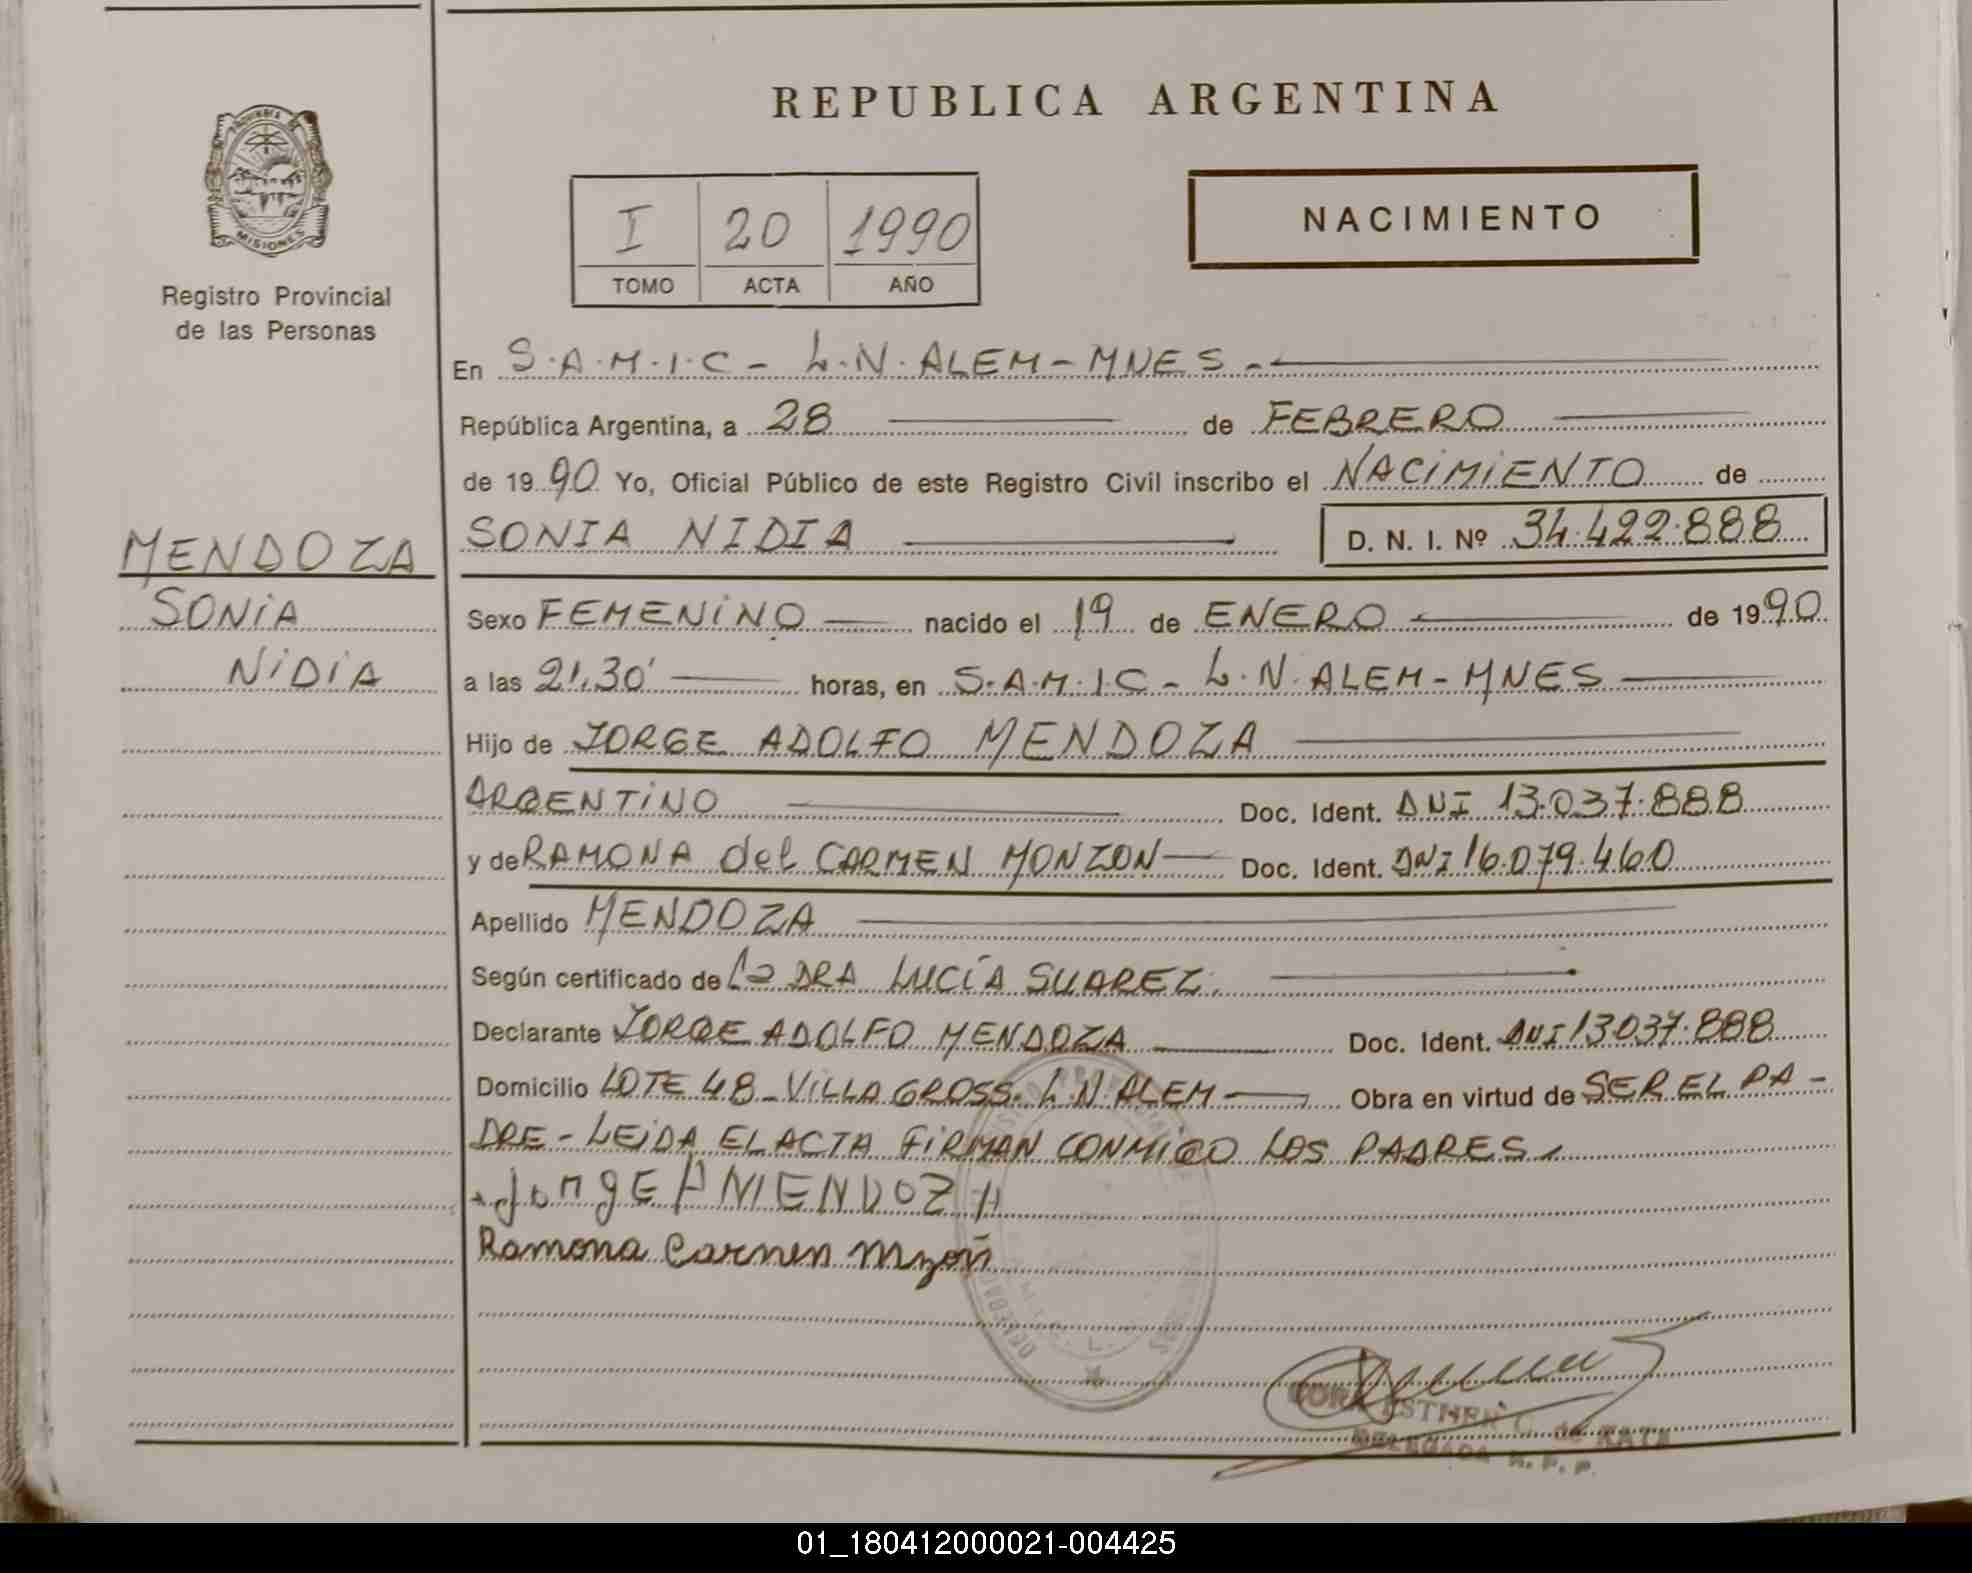 REPUBLICA ARGENTINA
PROVINCIA DE
MISIONES
Registro Provincial
de las Personas
I 20 1990
TOMO ACTA AÑO
NACIMIENTO
En S.A.M.I.C - L.N. ALEM - MNES -
República Argentina, a 28 de FEBRERO
de 1990 Yo, Oficial Público de este Registro Civil inscribo el NACIMIENTO de
SONIA NIDIA D. N. I. Nº 34.422.888
MENDOZA
SONIA
NIDIA
Sexo FEMENINO nacido el 19 de ENERO de 1990
a las 21.30' horas, en S.A.M.I.C - L.N. ALEM - MNES
Hijo de JORGE ADOLFO MENDOZA
ARGENTINO Doc. Ident. DNI 13.037.888
y de RAMONA del CARMEN MONZON Doc. Ident. DNI 16.079.460
Apellido MENDOZA
Según certificado de La DRA LUCÍA SUAREZ.
Declarante JORGE ADOLFO MENDOZA Doc. Ident. DNI 13.037.888
Domicilio LOTE 48 - VILLA GROSS - L.N. ALEM Obra en virtud de SER EL PA-
DRE - LEIDA EL ACTA FIRMAN CONMIGO LOS PADRES.
JorgE A MENDOZA
Ramona Carmen Mzon
ESTHER C. de
DELEGADA R. P. P.
01_180412000021-004425